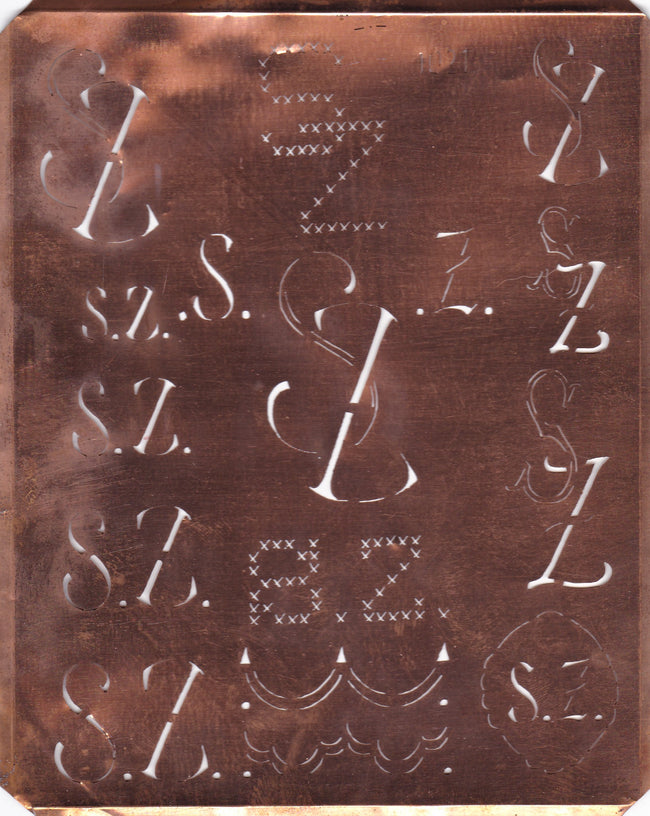 SZ
SZ
SZ
S. Z.
SZ
S.Z.
SZ
S.Z.
SZ
S.Z.
S.Z.
S.Z.
S.Z.